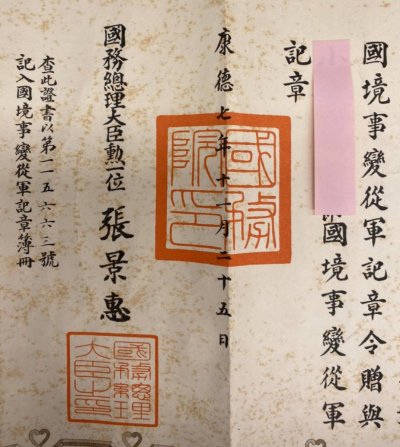 國境事變從軍記章令贈與
國境事變從軍
記章
康德七年十一月二十五日
國務院印
國務總理大臣勳一位 張景惠
國務總理大臣之印
查此證書以第一一五六六三號
記入國境事變從軍記章簿冊